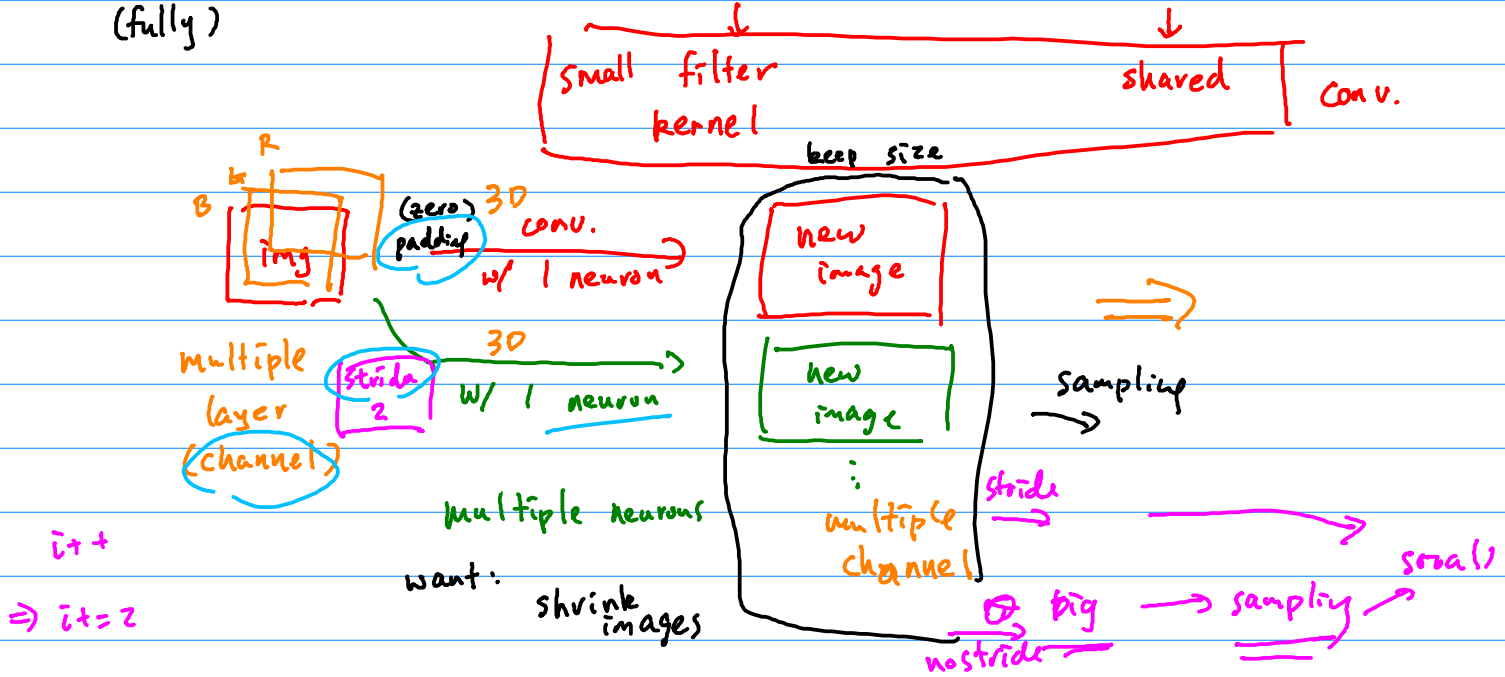 (fully)
small filter shared
kernel
conv.
keep size
R
G
B
img
(zero)
padding
3D
conv.
w/ 1 neuron
new
image
multiple
layer
(channel)
stride
2
3D
w/ 1 neuron
new
image
sampling
multiple neurons
multiple
channel
stride
i++
⇒ i+=2
want:
shrink
images
big → sampling
small
no stride